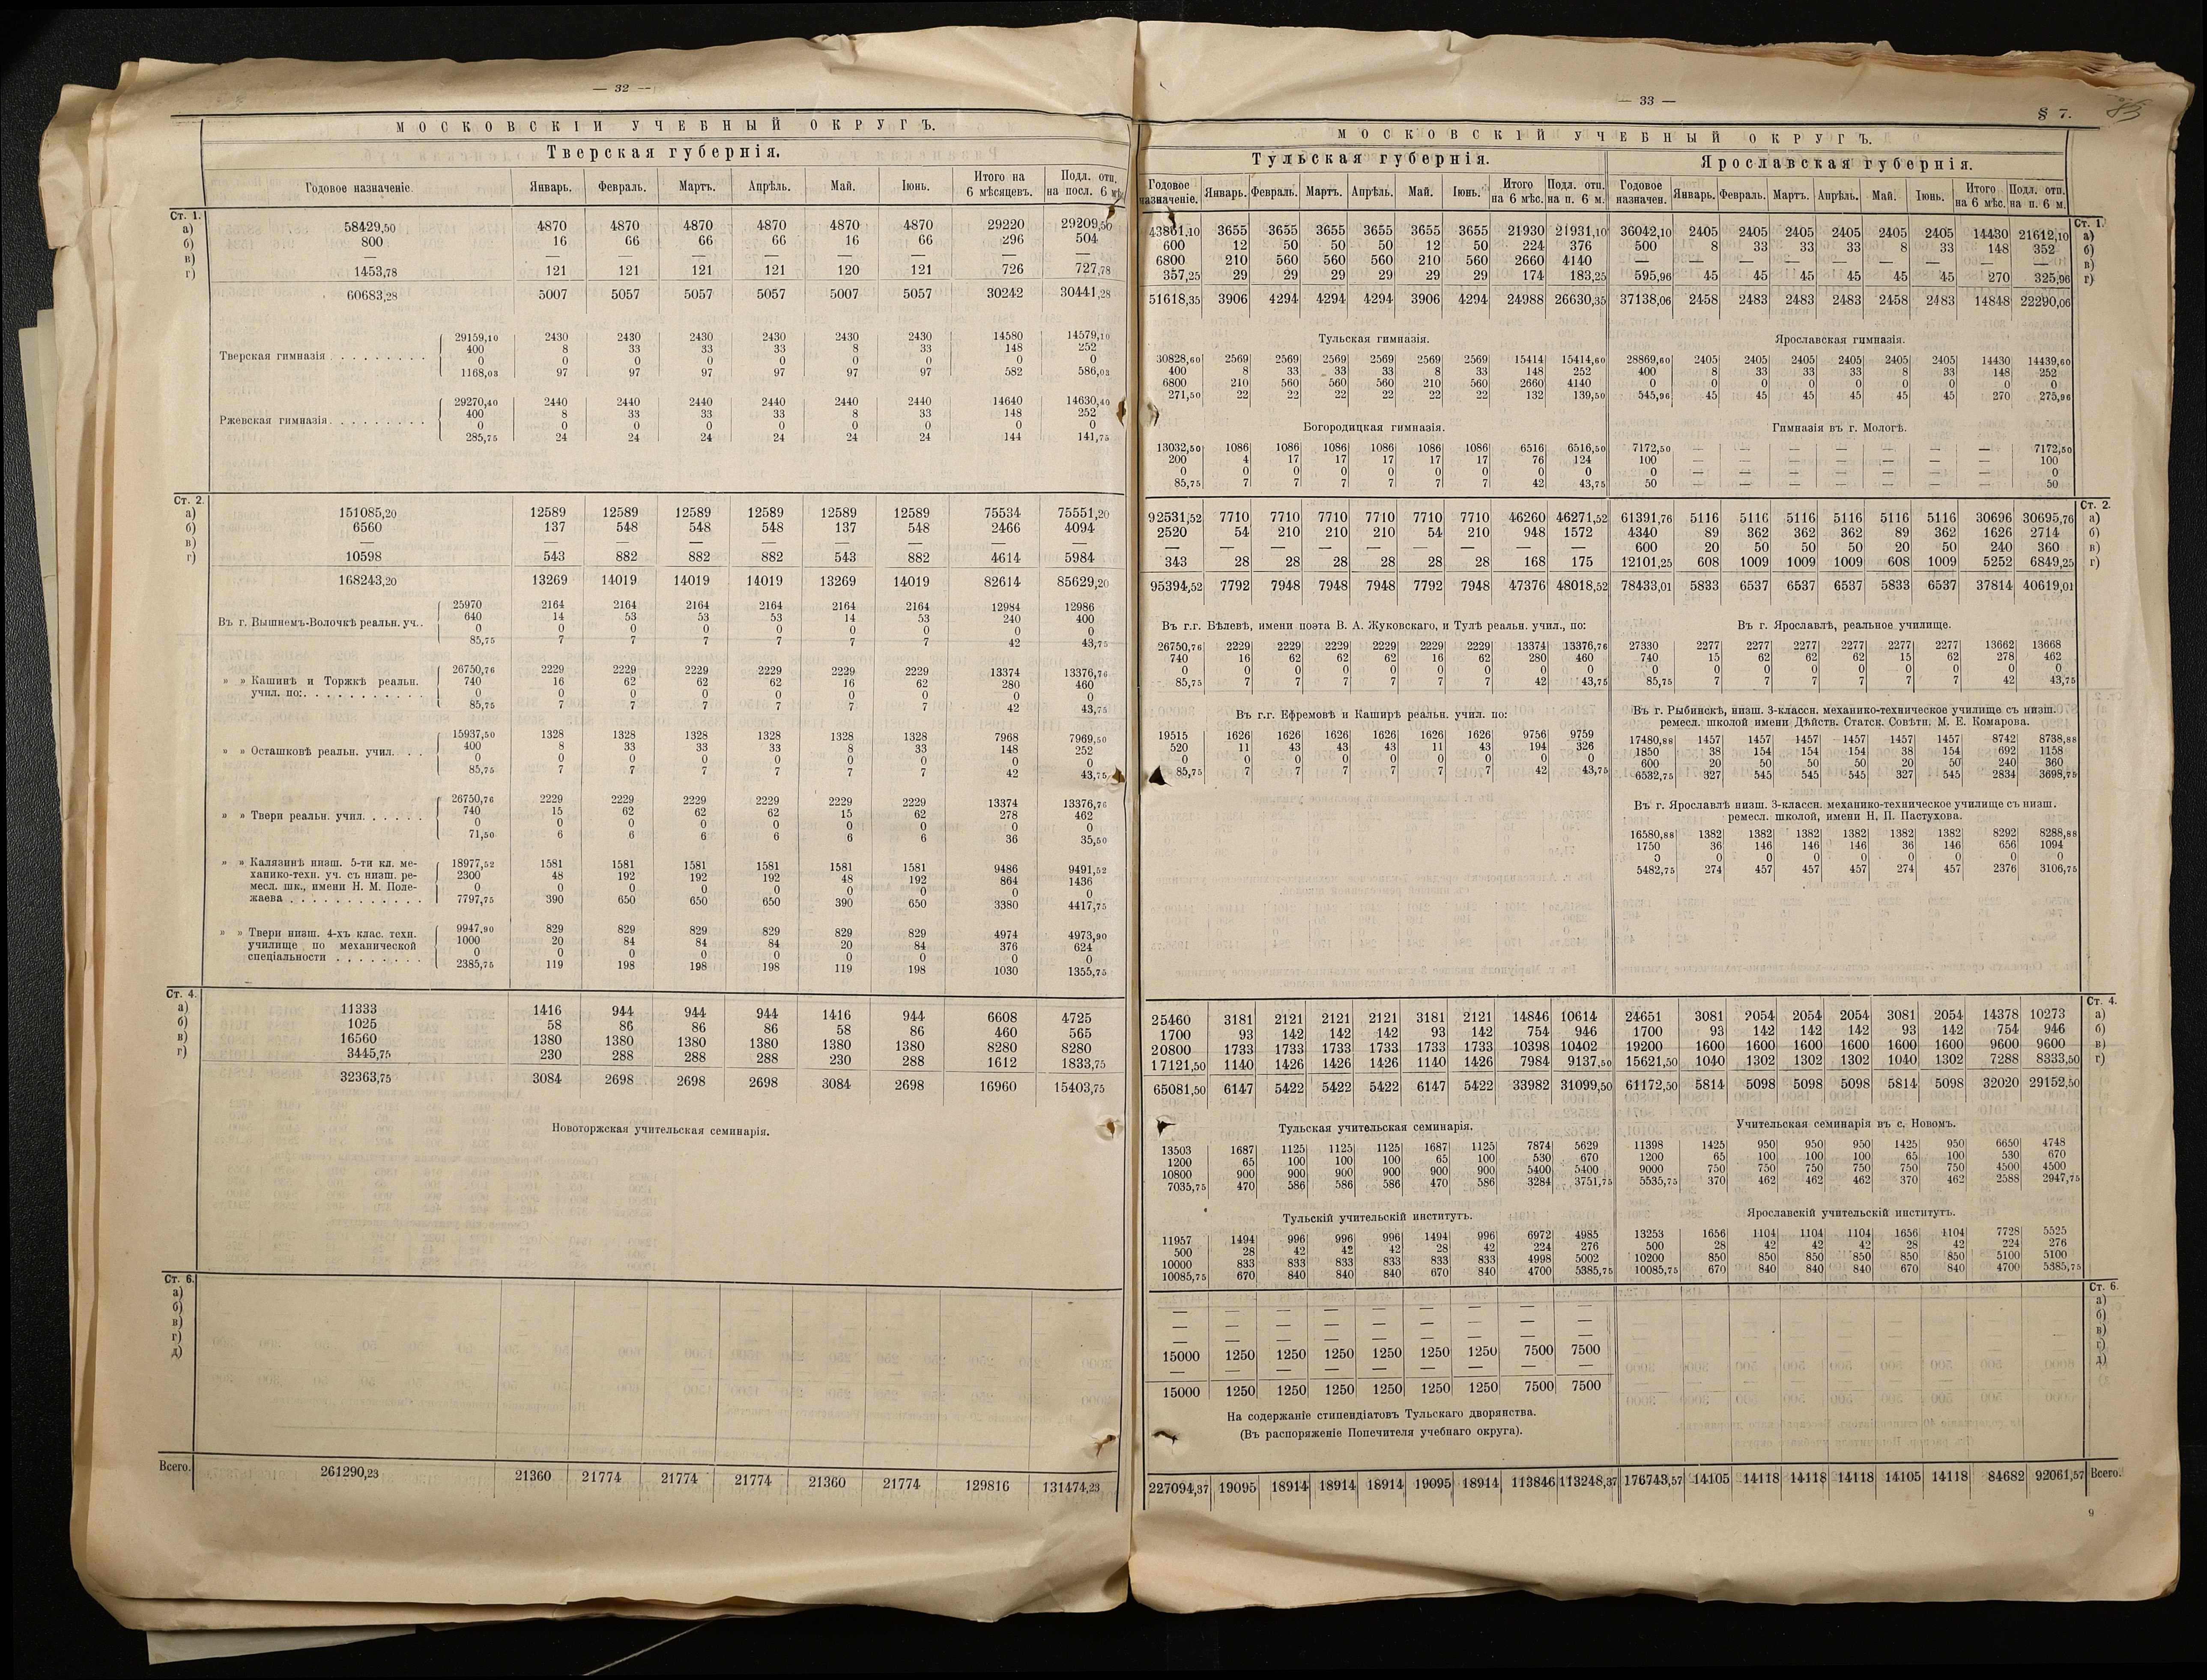 — 32 —
МОСКОВСКІЙ УЧЕБНЫЙ ОКРУГЪ.
Тверская губернія.
Годовое назначеніе. Январь. Февраль. Мартъ. Апрѣль. Май. Іюнь. Итого на 6 мѣсяцевъ. Подл. отп. на посл. 6 мѣс.
Ст. 1.
а) 58429,50 4870 4870 4870 4870 4870 4870 29220 29209,50
б) 800 16 66 66 66 16 66 296 504
в) — — — — — — — — —
г) 1453,78 121 121 121 121 120 121 726 727,78
60683,28 5007 5057 5057 5057 5007 5057 30242 30441,28
Тверская гимназія . . . . . . . . .
29159,10 2430 2430 2430 2430 2430 2430 14580 14579,10
400 8 33 33 33 8 33 148 252
0 0 0 0 0 0 0 0 0
1168,03 97 97 97 97 97 97 582 586,03
Ржевская гимназія . . . . . . . . .
29270,40 2440 2440 2440 2440 2440 2440 14640 14630,40
400 8 33 33 33 8 33 148 252
0 0 0 0 0 0 0 0 0
285,75 24 24 24 24 24 24 144 141,75
Ст. 2.
а) 151085,20 12589 12589 12589 12589 12589 12589 75534 75551,20
б) 6560 137 548 548 548 137 548 2466 4094
в) — — — — — — — — —
г) 10598 543 882 882 882 543 882 4614 5984
168243,20 13269 14019 14019 14019 13269 14019 82614 85629,20
Въ г. Вышнемъ-Волочкѣ реальн. уч. .
25970 2164 2164 2164 2164 2164 2164 12984 12986
640 14 53 53 53 14 53 240 400
0 0 0 0 0 0 0 0 0
85,75 7 7 7 7 7 7 42 43,75
» » Кашинѣ и Торжкѣ реальн.
учил. по: . . . . . . . . . . .
26750,76 2229 2229 2229 2229 2229 2229 13374 13376,76
740 16 62 62 62 16 62 280 460
0 0 0 0 0 0 0 0 0
85,75 7 7 7 7 7 7 42 43,75
» » Осташковѣ реальн. учил. . .
15937,50 1328 1328 1328 1328 1328 1328 7968 7969,50
400 8 33 33 33 8 33 148 252
0 0 0 0 0 0 0 0 0
85,75 7 7 7 7 7 7 42 43,75
» » Твери реальн. учил. . . . . .
26750,76 2229 2229 2229 2229 2229 2229 13374 13376,76
740 15 62 62 62 15 62 278 462
0 0 0 0 0 0 0 0 0
71,50 6 6 6 6 6 6 36 35,50
» » Калязинѣ низш. 5-ти кл. ме-
ханико-техн. уч. съ низш. ре-
месл. шк., имени Н. М. Поле-
жаева . . . . . . . . . . .
18977,52 1581 1581 1581 1581 1581 1581 9486 9491,52
2300 48 192 192 192 48 192 864 1436
0 0 0 0 0 0 0 0 0
7797,75 390 650 650 650 390 650 3380 4417,75
» » Твери низш. 4-хъ клас. техн.
училище по механической
спеціальности . . . . . . . .
9947,90 829 829 829 829 829 829 4974 4973,90
1000 20 84 84 84 20 84 376 624
0 0 0 0 0 0 0 0 0
2385,75 119 198 198 198 119 198 1030 1355,75
Ст. 4.
а) 11333 1416 944 944 944 1416 944 6608 4725
б) 1025 58 86 86 86 58 86 460 565
в) 16560 1380 1380 1380 1380 1380 1380 8280 8280
г) 3445,75 230 288 288 288 230 288 1612 1833,75
32363,75 3084 2698 2698 2698 3084 2698 16960 15403,75
Новоторжская учительская семинарія.
Ст. 6.
а)
б)
в)
г)
д)
Всего. 261290,23 21360 21774 21774 21774 21360 21774 129816 131474,23
— 33 —
§ 7.
МОСКОВСКІЙ УЧЕБНЫЙ ОКРУГЪ.
Тульская губернія. Ярославская губернія.
Годовое назначеніе. Январь. Февраль. Мартъ. Апрѣль. Май. Іюнь. Итого на 6 мѣс. Подл. отп. на п. 6 м. Годовое назначен. Январь. Февраль. Мартъ. Апрѣль. Май. Іюнь. Итого на 6 мѣс. Подл. отп. на п. 6 м.
Ст. 1.
43861,10 3655 3655 3655 3655 3655 3655 21930 21931,10 36042,10 2405 2405 2405 2405 2405 2405 14430 21612,10 а)
600 12 50 50 50 12 50 224 376 500 8 33 33 33 8 33 148 352 б)
6800 210 560 560 560 210 560 2660 4140 — — — — — — — — — в)
357,25 29 29 29 29 29 29 174 183,25 595,96 45 45 45 45 45 45 270 325,96 г)
51618,35 3906 4294 4294 4294 3906 4294 24988 26630,35 37138,06 2458 2483 2483 2483 2458 2483 14848 22290,06
Тульская гимназія. Ярославская гимназія.
30828,60 2569 2569 2569 2569 2569 2569 15414 15414,60 28869,60 2405 2405 2405 2405 2405 2405 14430 14439,60
400 8 33 33 33 8 33 148 252 400 8 33 33 33 8 33 148 252
6800 210 560 560 560 210 560 2660 4140 0 0 0 0 0 0 0 0 0
271,50 22 22 22 22 22 22 132 139,50 545,96 45 45 45 45 45 45 270 275,96
Богородицкая гимназія. Гимназія въ г. Мологѣ.
13032,50 1086 1086 1086 1086 1086 1086 6516 6516,50 7172,50 — — — — — — — 7172,50
200 4 17 17 17 17 17 76 124 100 — — — — — — — 100
0 0 0 0 0 0 0 0 0 0 — — — — — — — 0
85,75 7 7 7 7 7 7 42 43,75 50 — — — — — — — 50
Ст. 2.
92531,52 7710 7710 7710 7710 7710 7710 46260 46271,52 61391,76 5116 5116 5116 5116 5116 5116 30696 30695,76 а)
2520 54 210 210 210 54 210 948 1572 4340 89 362 362 362 89 362 1626 2714 б)
— — — — — — — — — 600 20 50 50 50 20 50 240 360 в)
343 28 28 28 28 28 28 168 175 12101,25 608 1009 1009 1009 608 1009 5252 6849,25 г)
95394,52 7792 7948 7948 7948 7792 7948 47376 48018,52 78433,01 5833 6537 6537 6537 5833 6537 37814 40619,01
Въ г.г. Бѣлевѣ, имени поэта В. А. Жуковскаго, и Тулѣ реальн. учил., по: Въ г. Ярославлѣ, реальное училище.
26750,76 2229 2229 2229 2229 2229 2229 13374 13376,76 27330 2277 2277 2277 2277 2277 2277 13662 13668
740 16 62 62 62 16 62 280 460 740 15 62 62 62 15 62 278 462
0 0 0 0 0 0 0 0 0 0 0 0 0 0 0 0 0 0
85,75 7 7 7 7 7 7 42 43,75 85,75 7 7 7 7 7 7 42 43,75
Въ г.г. Ефремовѣ и Каширѣ реальн. учил. по:
19515 1626 1626 1626 1626 1626 1626 9756 9759
520 11 43 43 43 11 43 194 326
0 0 0 0 0 0 0 0 0
85,75 7 7 7 7 7 7 42 43,75
Въ г. Рыбинскѣ, низш. 3-классн. механико-техническое училище съ низш.
ремесл. школой имени Дѣйств. Статск. Совѣтн. М. Е. Комарова.
17480,88 1457 1457 1457 1457 1457 1457 8742 8738,88
1850 38 154 154 154 38 154 692 1158
600 20 50 50 50 20 50 240 360
6532,75 327 545 545 545 327 545 2834 3698,75
Въ г. Ярославлѣ низш. 3-классн. механико-техническое училище съ низш.
ремесл. школой, имени Н. П. Пастухова.
16580,88 1382 1382 1382 1382 1382 1382 8292 8288,88
1750 36 146 146 146 36 146 656 1094
0 0 0 0 0 0 0 0 0
5482,75 274 457 457 457 274 457 2376 3106,75
Ст. 4.
25460 3181 2121 2121 2121 3181 2121 14846 10614 24651 3081 2054 2054 2054 3081 2054 14378 10273 а)
1700 93 142 142 142 93 142 754 946 1700 93 142 142 142 93 142 754 946 б)
20800 1733 1733 1733 1733 1733 1733 10398 10402 19200 1600 1600 1600 1600 1600 1600 9600 9600 в)
17121,50 1140 1426 1426 1426 1140 1426 7984 9137,50 15621,50 1040 1302 1302 1302 1040 1302 7288 8333,50 г)
65081,50 6147 5422 5422 5422 6147 5422 33982 31099,50 61172,50 5814 5098 5098 5098 5814 5098 32020 29152,50
Тульская учительская семинарія. Учительская семинарія въ с. Новомъ.
13503 1687 1125 1125 1125 1687 1125 7874 5629 11398 1425 950 950 950 1425 950 6650 4748
1200 65 100 100 100 65 100 530 670 1200 65 100 100 100 65 100 530 670
10800 900 900 900 900 900 900 5400 5400 9000 750 750 750 750 750 750 4500 4500
7035,75 470 586 586 586 470 586 3284 3751,75 5535,75 370 462 462 462 370 462 2588 2947,75
Тульскій учительскій институтъ. Ярославскій учительскій институтъ.
11957 1494 996 996 996 1494 996 6972 4985 13253 1656 1104 1104 1104 1656 1104 7728 5525
500 28 42 42 42 28 42 224 276 500 28 42 42 42 28 42 224 276
10000 833 833 833 833 833 833 4998 5002 10200 850 850 850 850 850 850 5100 5100
10085,75 670 840 840 840 670 840 4700 5385,75 10085,75 670 840 840 840 670 840 4700 5385,75
Ст. 6.
— — — — — — — — — а)
— — — — — — — — — б)
— — — — — — — — — в)
15000 1250 1250 1250 1250 1250 1250 7500 7500 г)
— — — — — — — — — д)
15000 1250 1250 1250 1250 1250 1250 7500 7500
На содержаніе стипендіатовъ Тульскаго дворянства.
(Въ распоряженіе Попечителя учебнаго округа).
227094,37 19095 18914 18914 18914 19095 18914 113846 113248,37 176743,57 14105 14118 14118 14118 14105 14118 84682 92061,57 Всего.
9